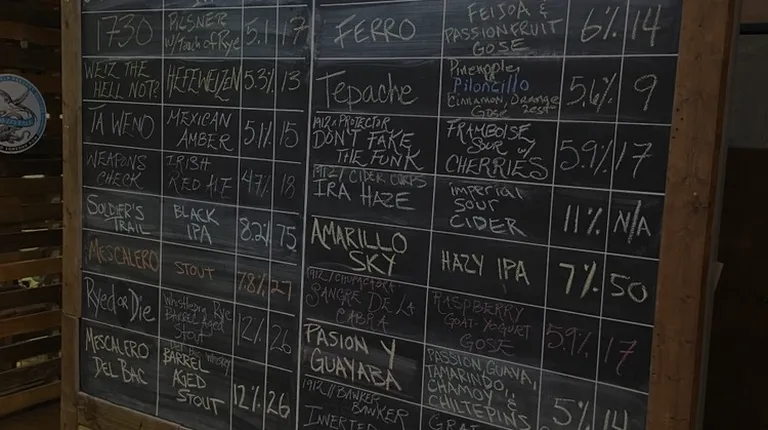 1730 PILSNER w/touch of Rye 5.1 17
WEIZ THE HELL NOT? HEFEWEIZEN 5.3% 13
TA WENO MEXICAN AMBER 5.1% 15
WEAPONS CHECK IRISH RED ALE 4.7% 18
SOLDIER'S TRAIL BLACK IPA 8.2% 75
MESCALERO STOUT 7.8% 27
RYED OR DIE Whistlepig Rye BARREL Aged STOUT 12% 26
MESCALERO DEL BAC Whiskey BARREL AGED STOUT 12% 26
FERRO FEIJOA & PASSIONFRUIT GOSE 6% 14
Tepache Pineapple, Piloncillo Cinnamon, Orange Gose zest 5.6% 9
1912 x PROTECTOR DON'T FAKE THE FUNK FRAMBOISE SOUR w/ CHERRIES 5.9% 17
1912 / CIDER CORPS IRA HAZE imperial SOUR CIDER 11% N/A
AMARILLO SKY HAZY IPA 7% 50
1912 / CHUPACABRA SANGRE DE LA CABRA RASPBERRY GOAT-YOGURT GOSE 5.9% 17
PASION Y GUAYABA PASSION, GUAVA, TAMARINDO, CHAMOY & CHILTEPINS 5% 14
1912 // BANKER BANKER INVERTED